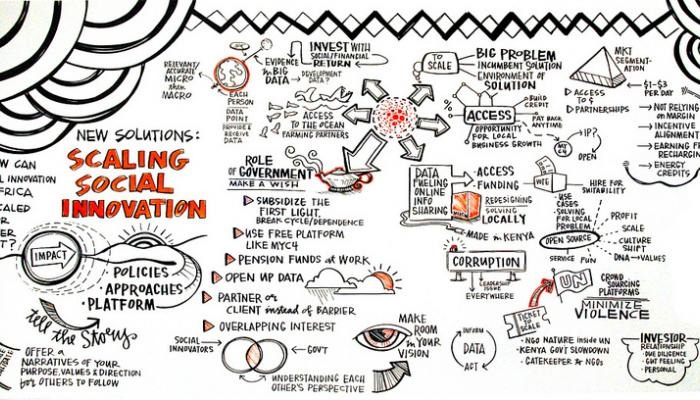 NEW SOLUTIONS:
SCALING
SOCIAL
INNOVATION
W CAN
L INNOVATION
FRICA
CALED
R
ER
T?
IMPACT
POLICIES
APPROACHES
• PLATFORM
tell the Story
OFFER A
NARRATIVES OF YOUR
PURPOSE, VALUES & DIRECTION
for OTHERS TO FOLLOW
RELEVANT/
ACCURATE
MICRO
than
MACRO
EVIDENCE
in BIG
DATA → DEVELOPMENT
DATA?
EACH
PERSON
DATA
POINT
PROVIDE &
RECEIVE
DATA
INVEST WITH
SOCIAL/FINANCIAL
RETURN
ACCESS
TO THE OCEAN
FARMING PARTNERS
ROLE
OF GOVERNMENT
MAKE A WISH
SUBSIDIZE THE
FIRST LIGHT,
BREAK CYCLE/DEPENDENCE
USE FREE PLATFORM
LIKE MYC4
PENSION FUNDS at WORK
OPEN UP DATA
PARTNER or
CLIENT instead of BARRIER
OVERLAPPING INTEREST
SOCIAL
INNOVATORS
GOV'T
UNDERSTANDING EACH
OTHER'S PERSPECTIVE
MAKE
ROOM
in YOUR
VISION
TO
SCALE
BIG PROBLEM
INCUMBENT SOLUTION
ENVIRONMENT OF
SOLUTION
%
BUILD
CREDIT
ACCESS
PAY BACK
ANYTIME
OPPORTUNITY
FOR LOCAL
BUSINESS GROWTH
MKT
SEGMENT-
ATION
ACCESS
TO $
PARTNERSHIPS
$1-$3
PER DAY
NOT RELYING
on MARGIN
INCENTIVE
ALIGNMENT
EARNING F
RECHARGIN
ENERGY
CREDITS
MY
C4
IPP
OPEN
DATA
FUELING
ONLINE
INFO
SHARING
ACCESS
FUNDING
REDESIGNING
SOLVING
LOCALLY
MADE in KENYA
CORRUPTION
LEADERSHIP
ISSUE
EVERYWHERE
INFORM
DATA
ACT
• USE
CASES
• SOLVING
FOR LOCAL
PROBLEM
HIRE FOR
SUITABILITY
OPEN SOURCE
PROFIT
SCALE
CULTURE
SHIFT
DNA→VALUES
SERVICE
FUN
UN
CROWD
SOURCING
PLATFORMS
MINIMIZE
VIOLENCE
TICKET
to
SCALE
• NGO NATURE inside UN
• KENYA GOV'T SLOWDOWN
• GATEKEEPER to NGOs
INVESTOR
RELATIONSHIP
• DUE DILIGENCE
• GUT FEELING
• PERSONAL